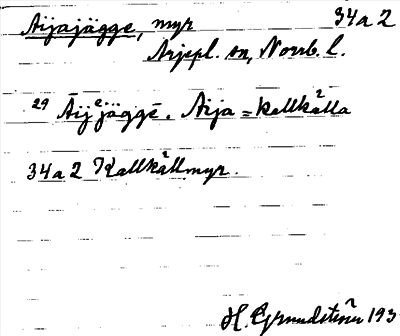 Aijajägge, myr 34 a 2
Arjepl. sn, Norrb. l.
29 Äijjäggē. Aija = kallkälla
34 a 2 Kallkällmyr.
H. Grundström 193